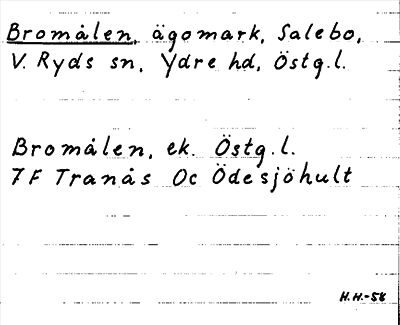 Bromålen, ägomark, Salebo,
V. Ryds sn, Ydre hd, Östg.l.
Bromålen, ek. Östg.l.
7F Tranås Oc Ödesjöhult
H.H.-58